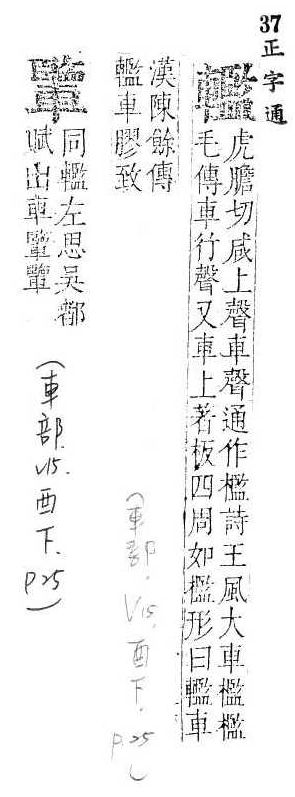 37正字通
轞
虎膽切咸上聲車聲通作檻詩王風大車檻檻
毛傳車行聲又車上著板四周如檻形曰轞車
漢陳餘傳
轞車膠致
(車部.V15.酉下.P25)
同轞左思吳都
賦出車𨏊𨏊
(車部.V15.酉下.P25)